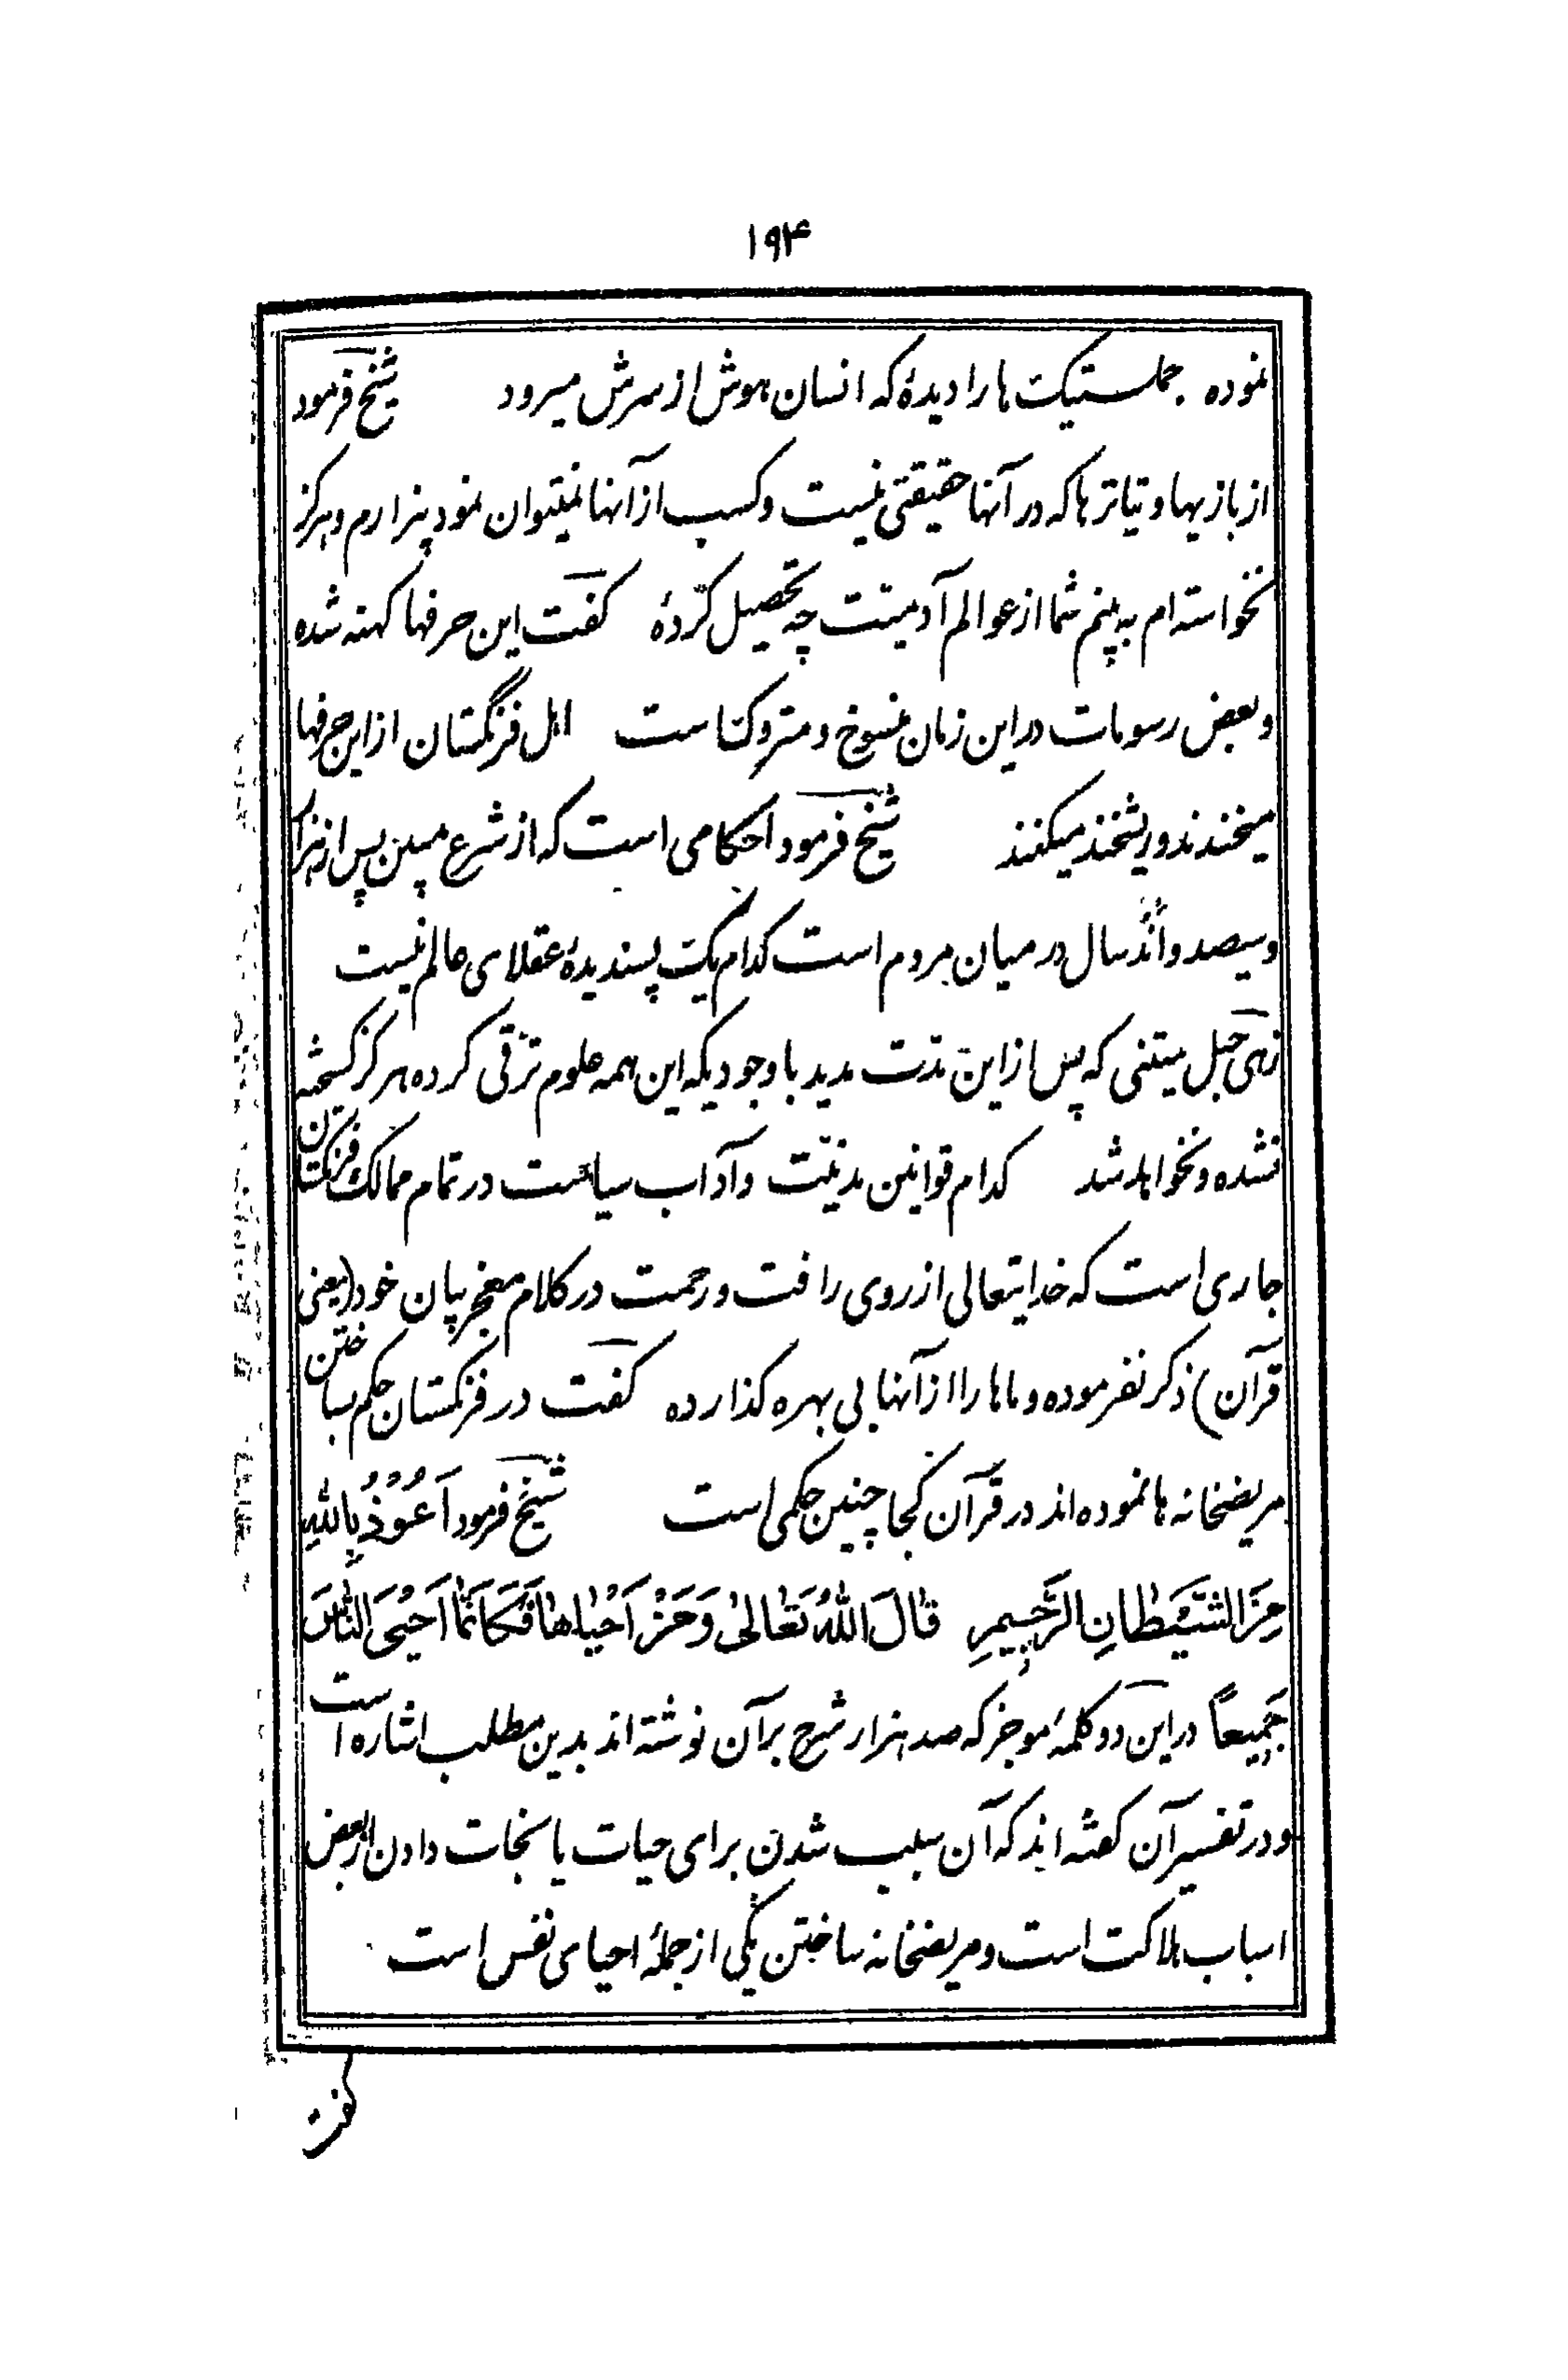 ۱۹۴
نموده جملستیک ها را دیدۀ که انسان هوش از سرش میرود شیخ فرمود
از بازیها و تیاترها که در آنها حقیقتی نیست و کسب از آنها نمیتوان نمود بیزارم و هرگز
نخواسته ام به بینم شما از عوالم آدمیت چه تحصیل کردۀ گفت این حرفها کهنه شده
و بعض رسومات در این زمان منسوخ و متروکست اهل فرنگستان از این حرفها
میخندند و ریشخند میکنند شیخ فرمود احکامی است که از شرع مبین پس از هزار
و سیصد و اند سال در میان مردم است کدام یک پسندیدۀ عقلای عالم نیست
زهی حبل متینی که پس از این مدّت مدید با وجودیکه این همه علوم ترقی کرده هرگز گسسته
نشده و نخواهد شد کدام قوانین مدنیّت و آداب سیاست در تمام ممالک فرنگستان
جاری است که خدایتعالی از روی رافت و رحمت در کلام معجز بیان خود (یعنی
قرآن) ذکر نفرموده و ماها را از آنها بی بهره گذارده گفت در فرنگستان حکم بساختن
مریضخانه ها نموده اند در قرآن کجا چنین حکمی است شیخ فرمود اَعُوذُ بِاللهِ
مِنَ الشَّیْطانِ الرَّجیمِ قالَ اللهُ تَعالیٰ وَ مَنْ اَحْیاها فَکَاَنَّمٰا اَحْیَی النّٰاسَ
جَمیعاً در این دو کلمۀ موجز که صد هزار شرح بر آن نوشته اند بدین مطلب اشاره است
و در تفسیر آن گفته اند که آن سبب شدن برای حیات یا نجات دادن از بعض
اسباب هلاکت است و مریضخانه ساختن یکی از جملۀ احیای نفس است
گفت